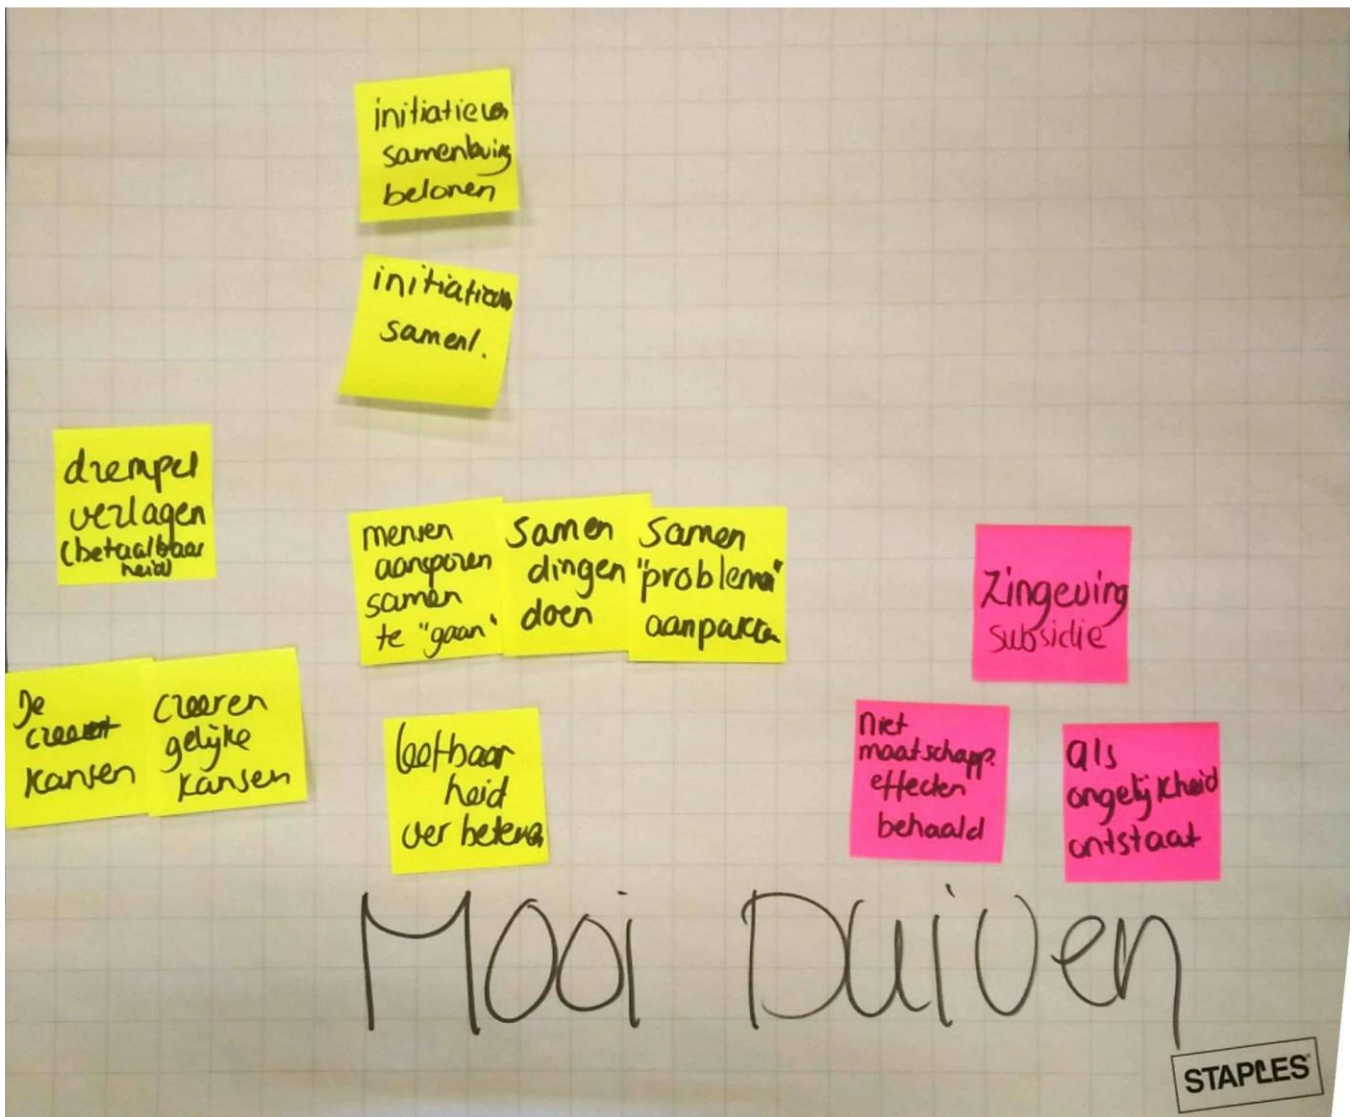 initiatieven
samenleving
belonen
initiatieven
samenl.
drempel
verlagen
(betaalbaar
heid)
mensen
aansporen
samen
te "gaan"
Samen
dingen
doen
Samen
"problemen"
aanpakken
Je
creeert
kansen
Creeren
gelijke
kansen
leefbaar
heid
verbeteren
Zingeving
subsidie
niet
maatschapp.
effecten
behaald
als
ongelijkheid
ontstaat
Mooi Duiven
STAPLES